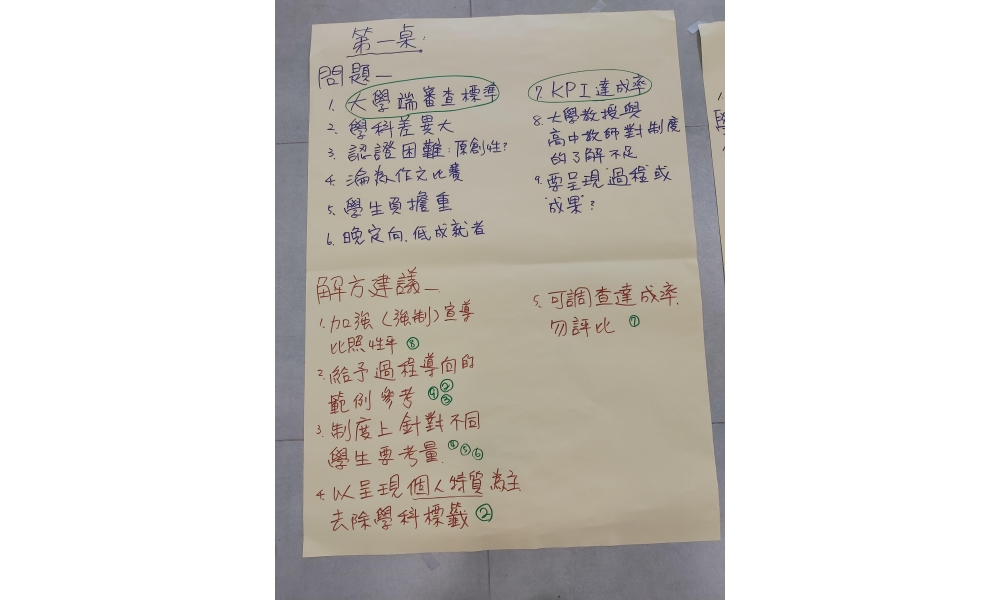 第一桌:
問題—
1. 大學端審查標準
2. 學科差異大
3. 認證困難:原創性?
4. 淪為作文比賽
5. 學生負擔重
6. 晚定向、低成就者
7. KPI達成率
8. 大學教授與
高中教師對制度
的了解不足
9. 要呈現"過程"或
"成果"?
解方建議—
1. 加強(強制)宣導
比照性平 ⑧
2. 給予過程導向的
範例參考 ④②③
3. 制度上針對不同
學生要考量 ④⑤⑥
4. 以呈現個人特質為主
去除學科標籤 ②
5. 可調查達成率,
勿評比 ⑦